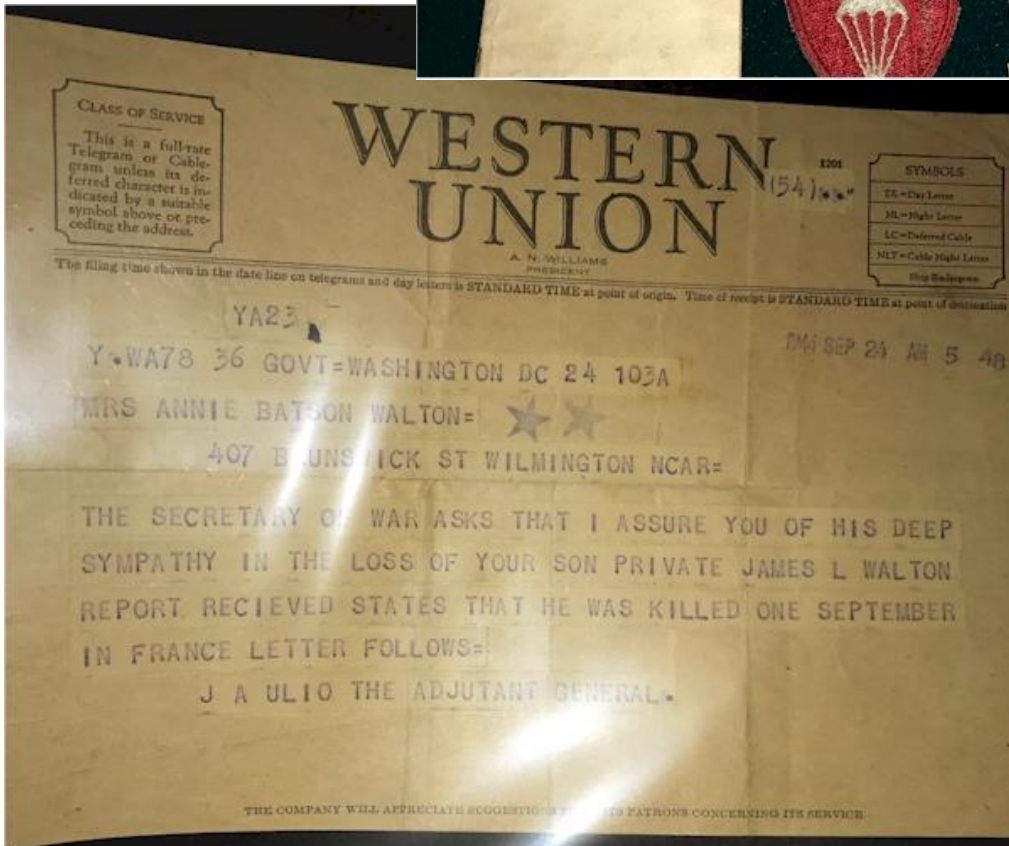 CLASS OF SERVICE
This is a full-rate
Telegram or Cable-
gram unless its de-
ferred character is in-
dicated by a suitable
symbol above or pre-
ceding the address.
WESTERN
UNION
A. N. WILLIAMS
PRESIDENT
1201
(54)
SYMBOLS
DL=Day Letter
NL=Night Letter
LC=Deferred Cable
NLT=Cable Night Letter
Ship Radiogram
The filing time shown in the date line on telegrams and day letters is STANDARD TIME at point of origin. Time of receipt is STANDARD TIME at point of destination
YA23
SEP 24 AM 5 48
Y.WA78 36 GOVT=WASHINGTON DC 24 103A
MRS ANNIE BATSON WALTON=
407 BRUNSWICK ST WILMINGTON NCAR=
THE SECRETARY OF WAR ASKS THAT I ASSURE YOU OF HIS DEEP
SYMPATHY IN THE LOSS OF YOUR SON PRIVATE JAMES L WALTON
REPORT RECIEVED STATES THAT HE WAS KILLED ONE SEPTEMBER
IN FRANCE LETTER FOLLOWS=
J A ULIO THE ADJUTANT GENERAL.
THE COMPANY WILL APPRECIATE SUGGESTIONS ITS PATRONS CONCERNING ITS SERVICE